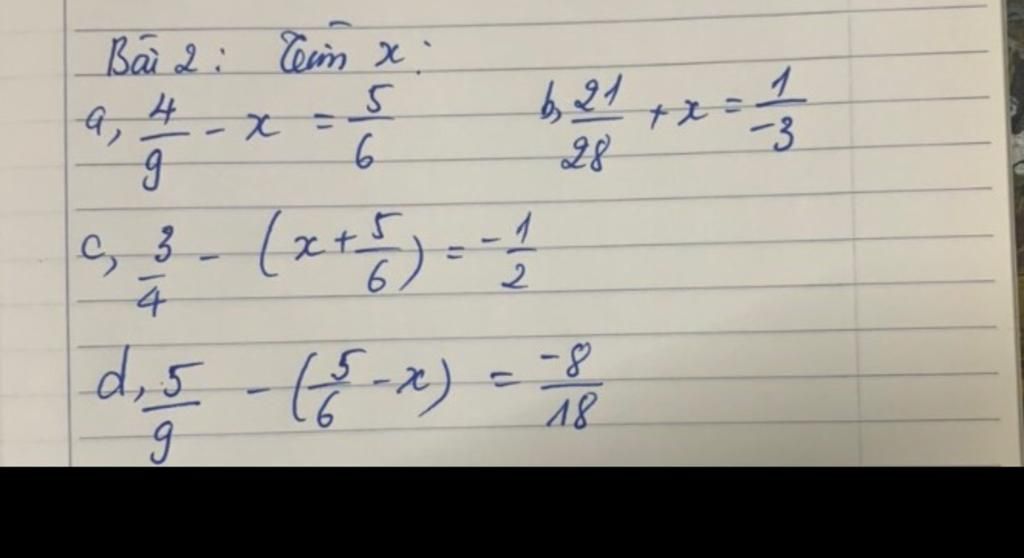 Bài 2: Tìm x:
a, 4/9 - x = 5/6 b, 21/28 + x = 1/-3
c, 3/4 - (x + 5/6) = -1/2
d, 5/9 - (5/6 - x) = -8/18